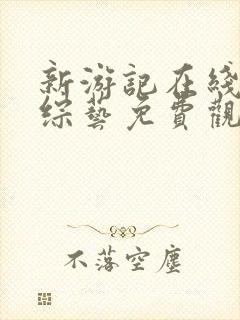 新游記在綫
綜藝免費觀
不落空塵